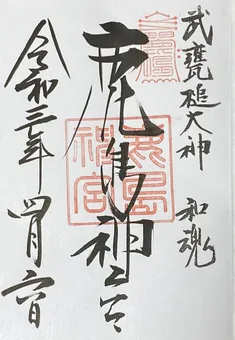 武甕槌大神 和魂
鹿島神宮
鹿島
神宮
令和三年四月六日